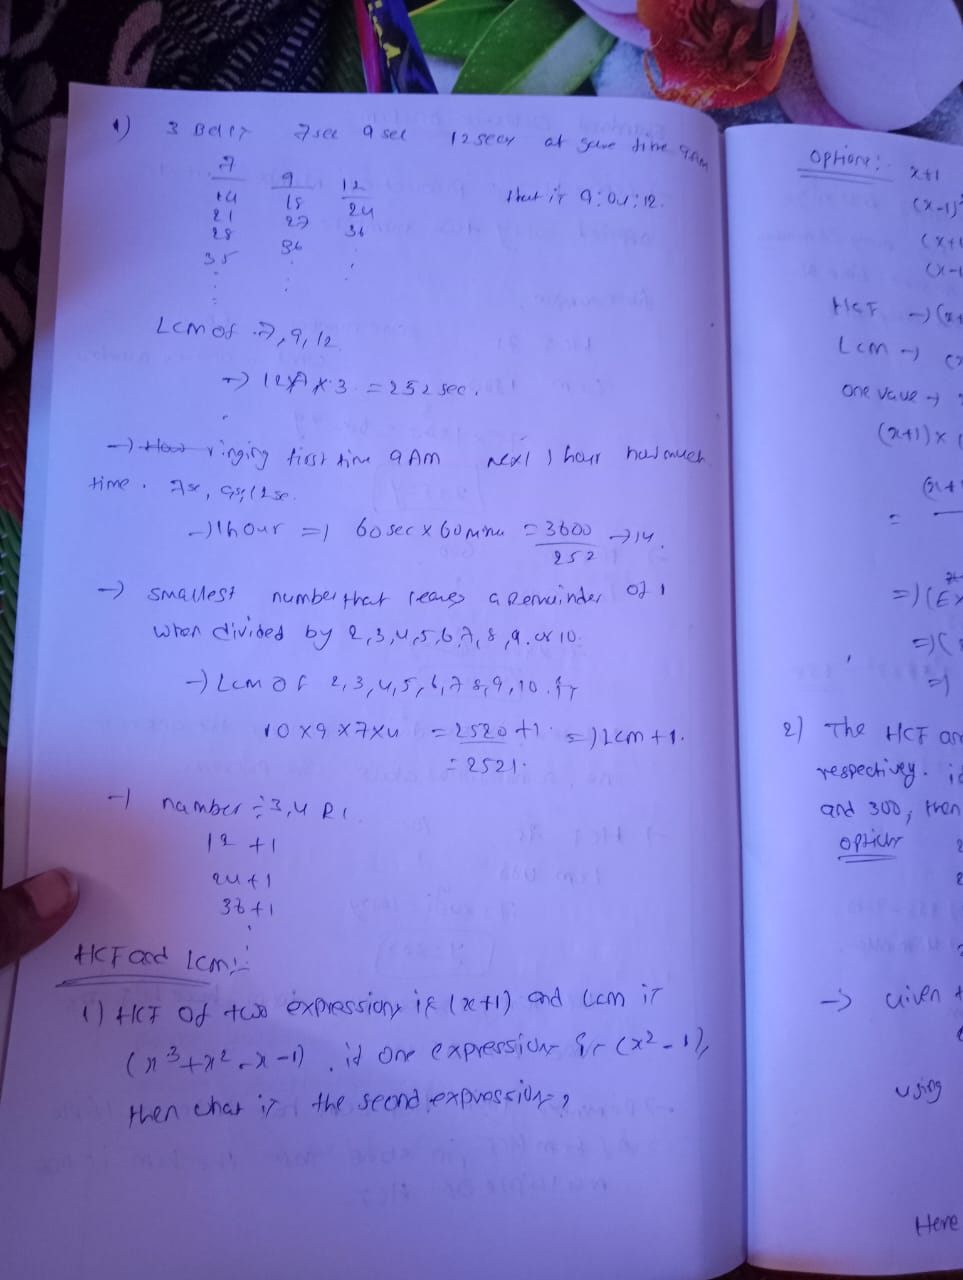 1) 3 Bells 7sec 9 sec 12 secs at same time 9AM
7 9 12 that is 9:04:12.
14 18 24
21 27 36
28 36
35
LCM of 7, 9, 12
→ 12 x 7 x 3 = 252 sec.
→ ringing first time 9 AM next 1 hour how much
time.
→ 1 hour => 60 sec x 60 = 3600 → 14.
252
→ smallest number that leaves a remainder of 1
when divided by 2, 3, 4, 5, 6, 7, 8, 9, or 10.
→ LCM of 2, 3, 4, 5, 6, 7 8, 9, 10.
10 x 9 x 7 x 4 = 2520 + 1 => LCM + 1.
= 2521.
→ number ÷ 3, 4 R 1
12 + 1
24 + 1
36 + 1
HCF and LCM:-
1) HCF of two expressions is (x+1) and LCM is
(x³ + x² - x - 1). if one expression is (x² - 1),
then what is the second expression?
Options: x+1
(x-1)
HCF →
LCM →
one value →
(x+1) x (
2) The HCF
respectively.
and 300, then
option
→ Given
using
Here